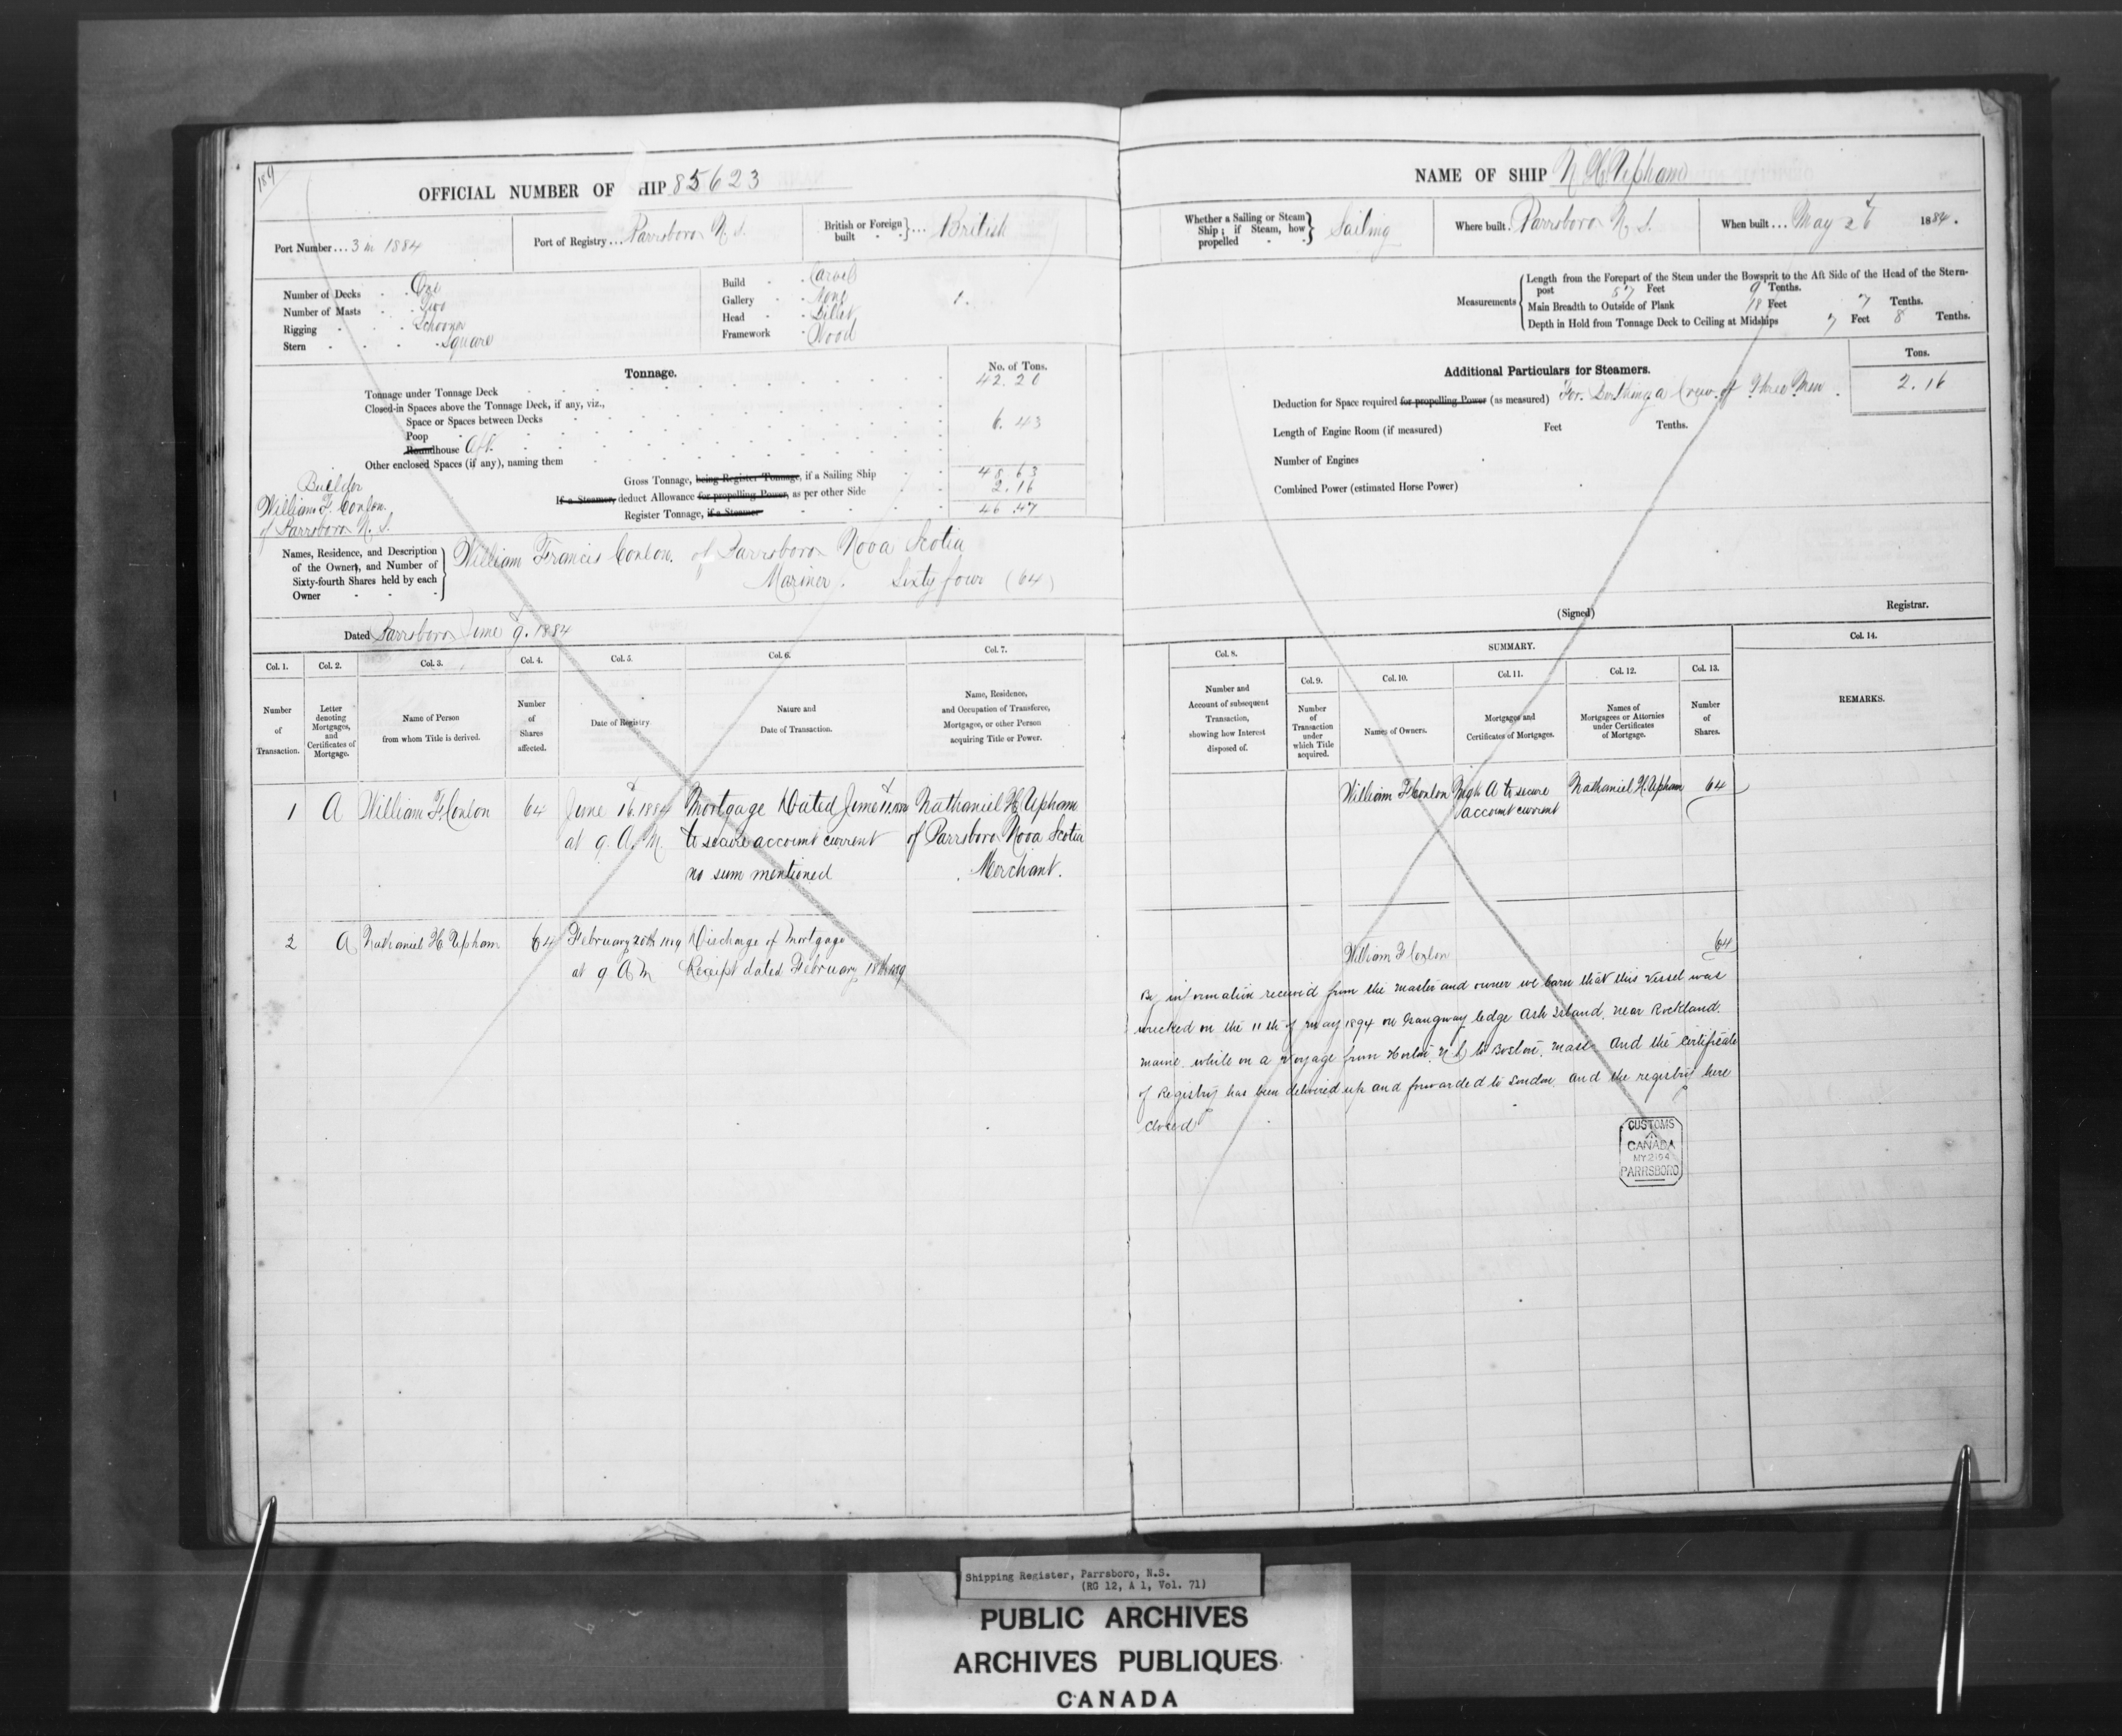 184
OFFICIAL NUMBER OF HIP 85623
Port Number ... 3 in 1884
Port of Registry ... Parrsboro N. S.
British or Foreign built } ... British
Number of Decks One
Number of Masts Two
Rigging Schooner
Stern Square
Build Carvel
Gallery None
Head Billet
Framework Wood
1.
Tonnage.
No. of Tons.
Tonnage under Tonnage Deck 42.20
Closed-in Spaces above the Tonnage Deck, if any, viz.,
Space or Spaces between Decks
Poop 6.43
Roundhouse Aft
Other enclosed Spaces (if any), naming them
Gross Tonnage, being Register Tonnage, if a Sailing Ship 48.63
If a Steamer, deduct Allowance for propelling Power, as per other Side 2.16
Register Tonnage, if a Steamer 46.47
Builder
William F. Conlon
of Parrsboro N. S.
Names, Residence, and Description
of the Owners, and Number of
Sixty-fourth Shares held by each
Owner
William Francis Conlon. of Parrsboro Nova Scotia
Mariner. Sixty four (64)
Dated Parrsboro June 9. 1884
Col. 1. Col. 2. Col. 3. Col. 4. Col. 5. Col. 6. Col. 7.
Number of Transaction.
Letter denoting Mortgages, and Certificates of Mortgage.
Name of Person from whom Title is derived.
Number of Shares affected.
Date of Registry.
Nature and Date of Transaction.
Name, Residence, and Occupation of Transferee, Mortgagee, or other Person acquiring Title or Power.
1 A William F. Conlon 64 June 16. 1884 Mortgage Dated June Nathaniel H Upham
at 9. A. M. to secure account current of Parrsboro Nova Scotia
no sum mentioned Merchant.
2 A Nathaniel H Upham 64 February 20th 1889 Discharge of Mortgage
at 9 A M Receipt dated February 18th 1889
NAME OF SHIP N. H. Upham
Whether a Sailing or Steam Ship; if Steam, how propelled } Sailing
Where built. Parrsboro N. S.
When built ... May 26 1884.
Measurements
Length from the Forepart of the Stem under the Bowsprit to the Aft Side of the Head of the Stern-
post 57 Feet 9 Tenths.
Main Breadth to Outside of Plank 18 Feet 7 Tenths.
Depth in Hold from Tonnage Deck to Ceiling at Midships 7 Feet 8 Tenths.
Additional Particulars for Steamers.
Tons.
Deduction for Space required for propelling Power (as measured) For Berthing a Crew of Three Men. 2.16
Length of Engine Room (if measured) Feet Tenths.
Number of Engines
Combined Power (estimated Horse Power)
(Signed) Registrar.
Col. 8. SUMMARY. Col. 14.
Col. 9. Col. 10. Col. 11. Col. 12. Col. 13.
Number and Account of subsequent Transaction, showing how Interest disposed of.
Number of Transaction under which Title acquired.
Names of Owners.
Mortgages and Certificates of Mortgages.
Names of Mortgagees or Attornies under Certificates of Mortgage.
Number of Shares.
REMARKS.
William F Conlon Mtgk A to secure Nathaniel H. Upham 64
account current
William F Conlon 64
By information received from the master and owner we learn that this vessel was
wrecked on the 11th of may 1894 on Gangway ledge Ash Island, near Rockland.
maine while on a voyage from to Boston, mass and the certificate
of Registry has been delivered up and forwarded to London and the registry here
closed
CUSTOMS
CANADA
MY 21 94
PARRSBORO
Shipping Register, Parrsboro, N.S.
(RG 12, A 1, Vol. 71)
PUBLIC ARCHIVES
ARCHIVES PUBLIQUES
CANADA